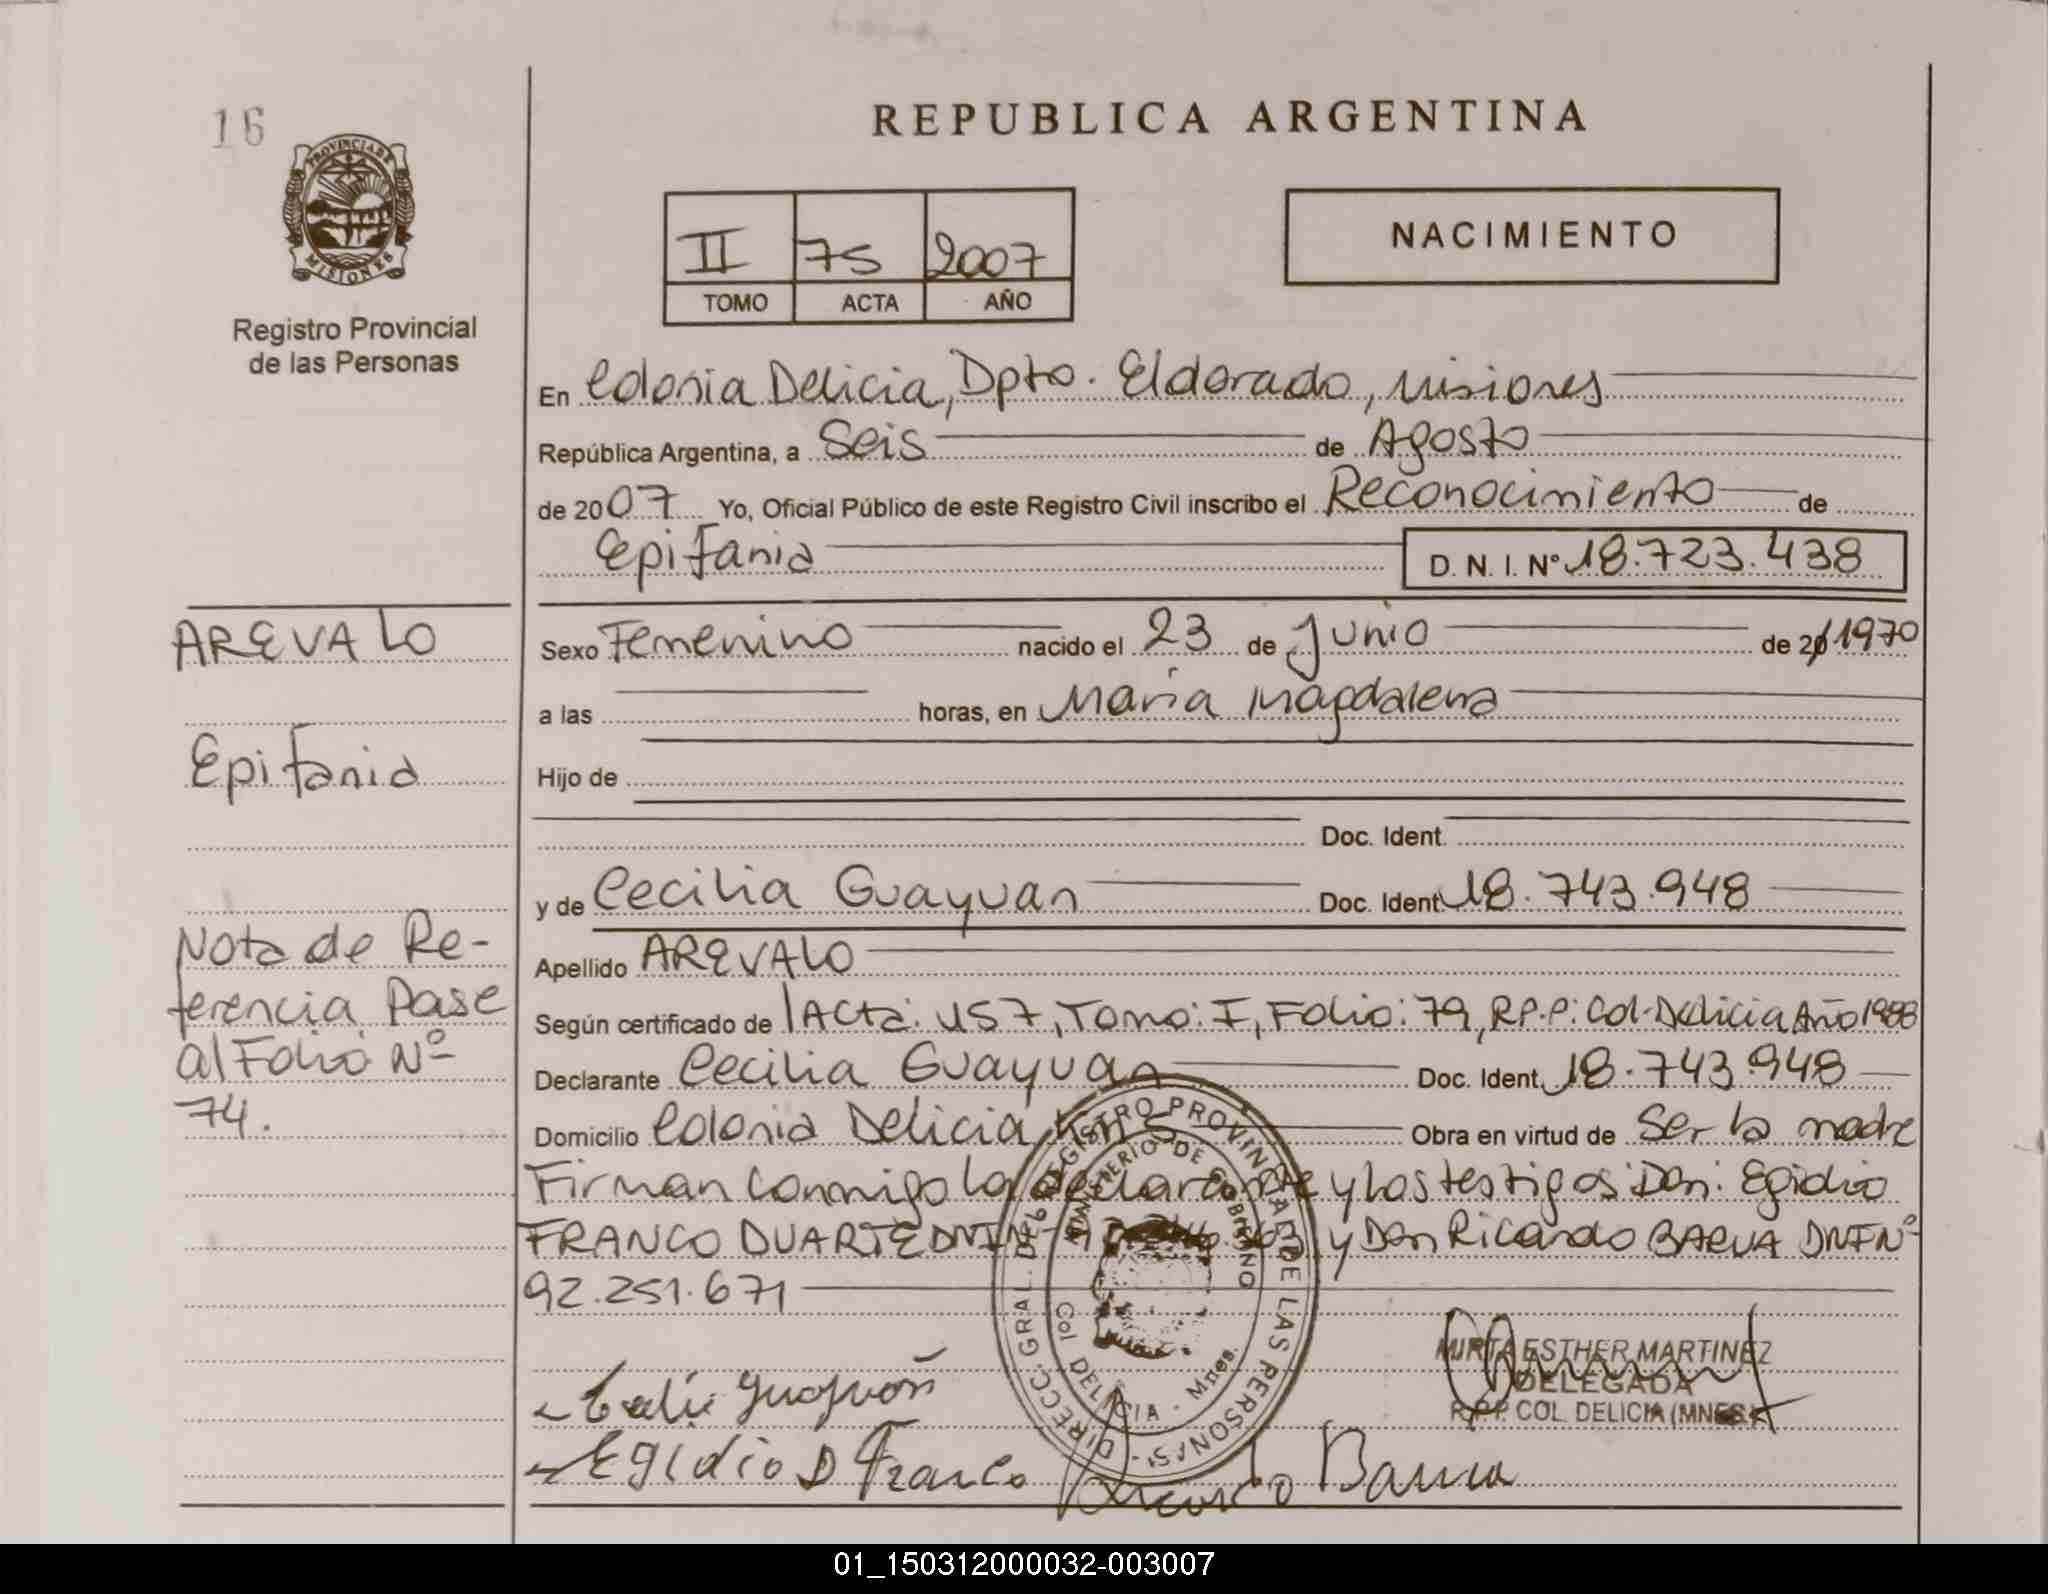 16
PROVINCIA DE
MISIONES
Registro Provincial
de las Personas
REPUBLICA ARGENTINA
II 75 2007
TOMO ACTA AÑO
NACIMIENTO
En Colonia Delicia, Dpto. Eldorado, Misiones
República Argentina, a Seis de Agosto
de 2007 Yo, Oficial Público de este Registro Civil inscribo el Reconocimiento de
Epifania D. N. I. Nº 18.723.438
AREVALO
Epifania
Nota de Re-
ferencia Pase
al Folio Nº
74.
Sexo Femenino nacido el 23 de Junio de 20 1970
a las horas, en Maria Magdalena
Hijo de
Doc. Ident.
y de Cecilia Guayuan Doc. Ident. 18.743.948
Apellido AREVALO
Según certificado de Acta: 157, Tomo: I, Folio: 79, R.P.P: Col. Delicia Año 1988
Declarante Cecilia Guayuan Doc. Ident. 18.743.948
Domicilio Colonia Delicia, Obra en virtud de Ser la madre
Firman conmigo la declarante y los testigos Don: Egidio
FRANCO DUARTE DNI Nº y Don Ricardo BAEVA DNI Nº
92.251.671
DIRECC. GRAL. DEL REGISTRO PROVINCIAL DE LAS PERSONAS
MINISTERIO DE GOBIERNO
Col DELICIA - Mnes.
MIRTA ESTHER MARTINEZ
DELEGADA
R.P.P. COL. DELICIA (MNES.)
Egidio D Franco
01_150312000032-003007